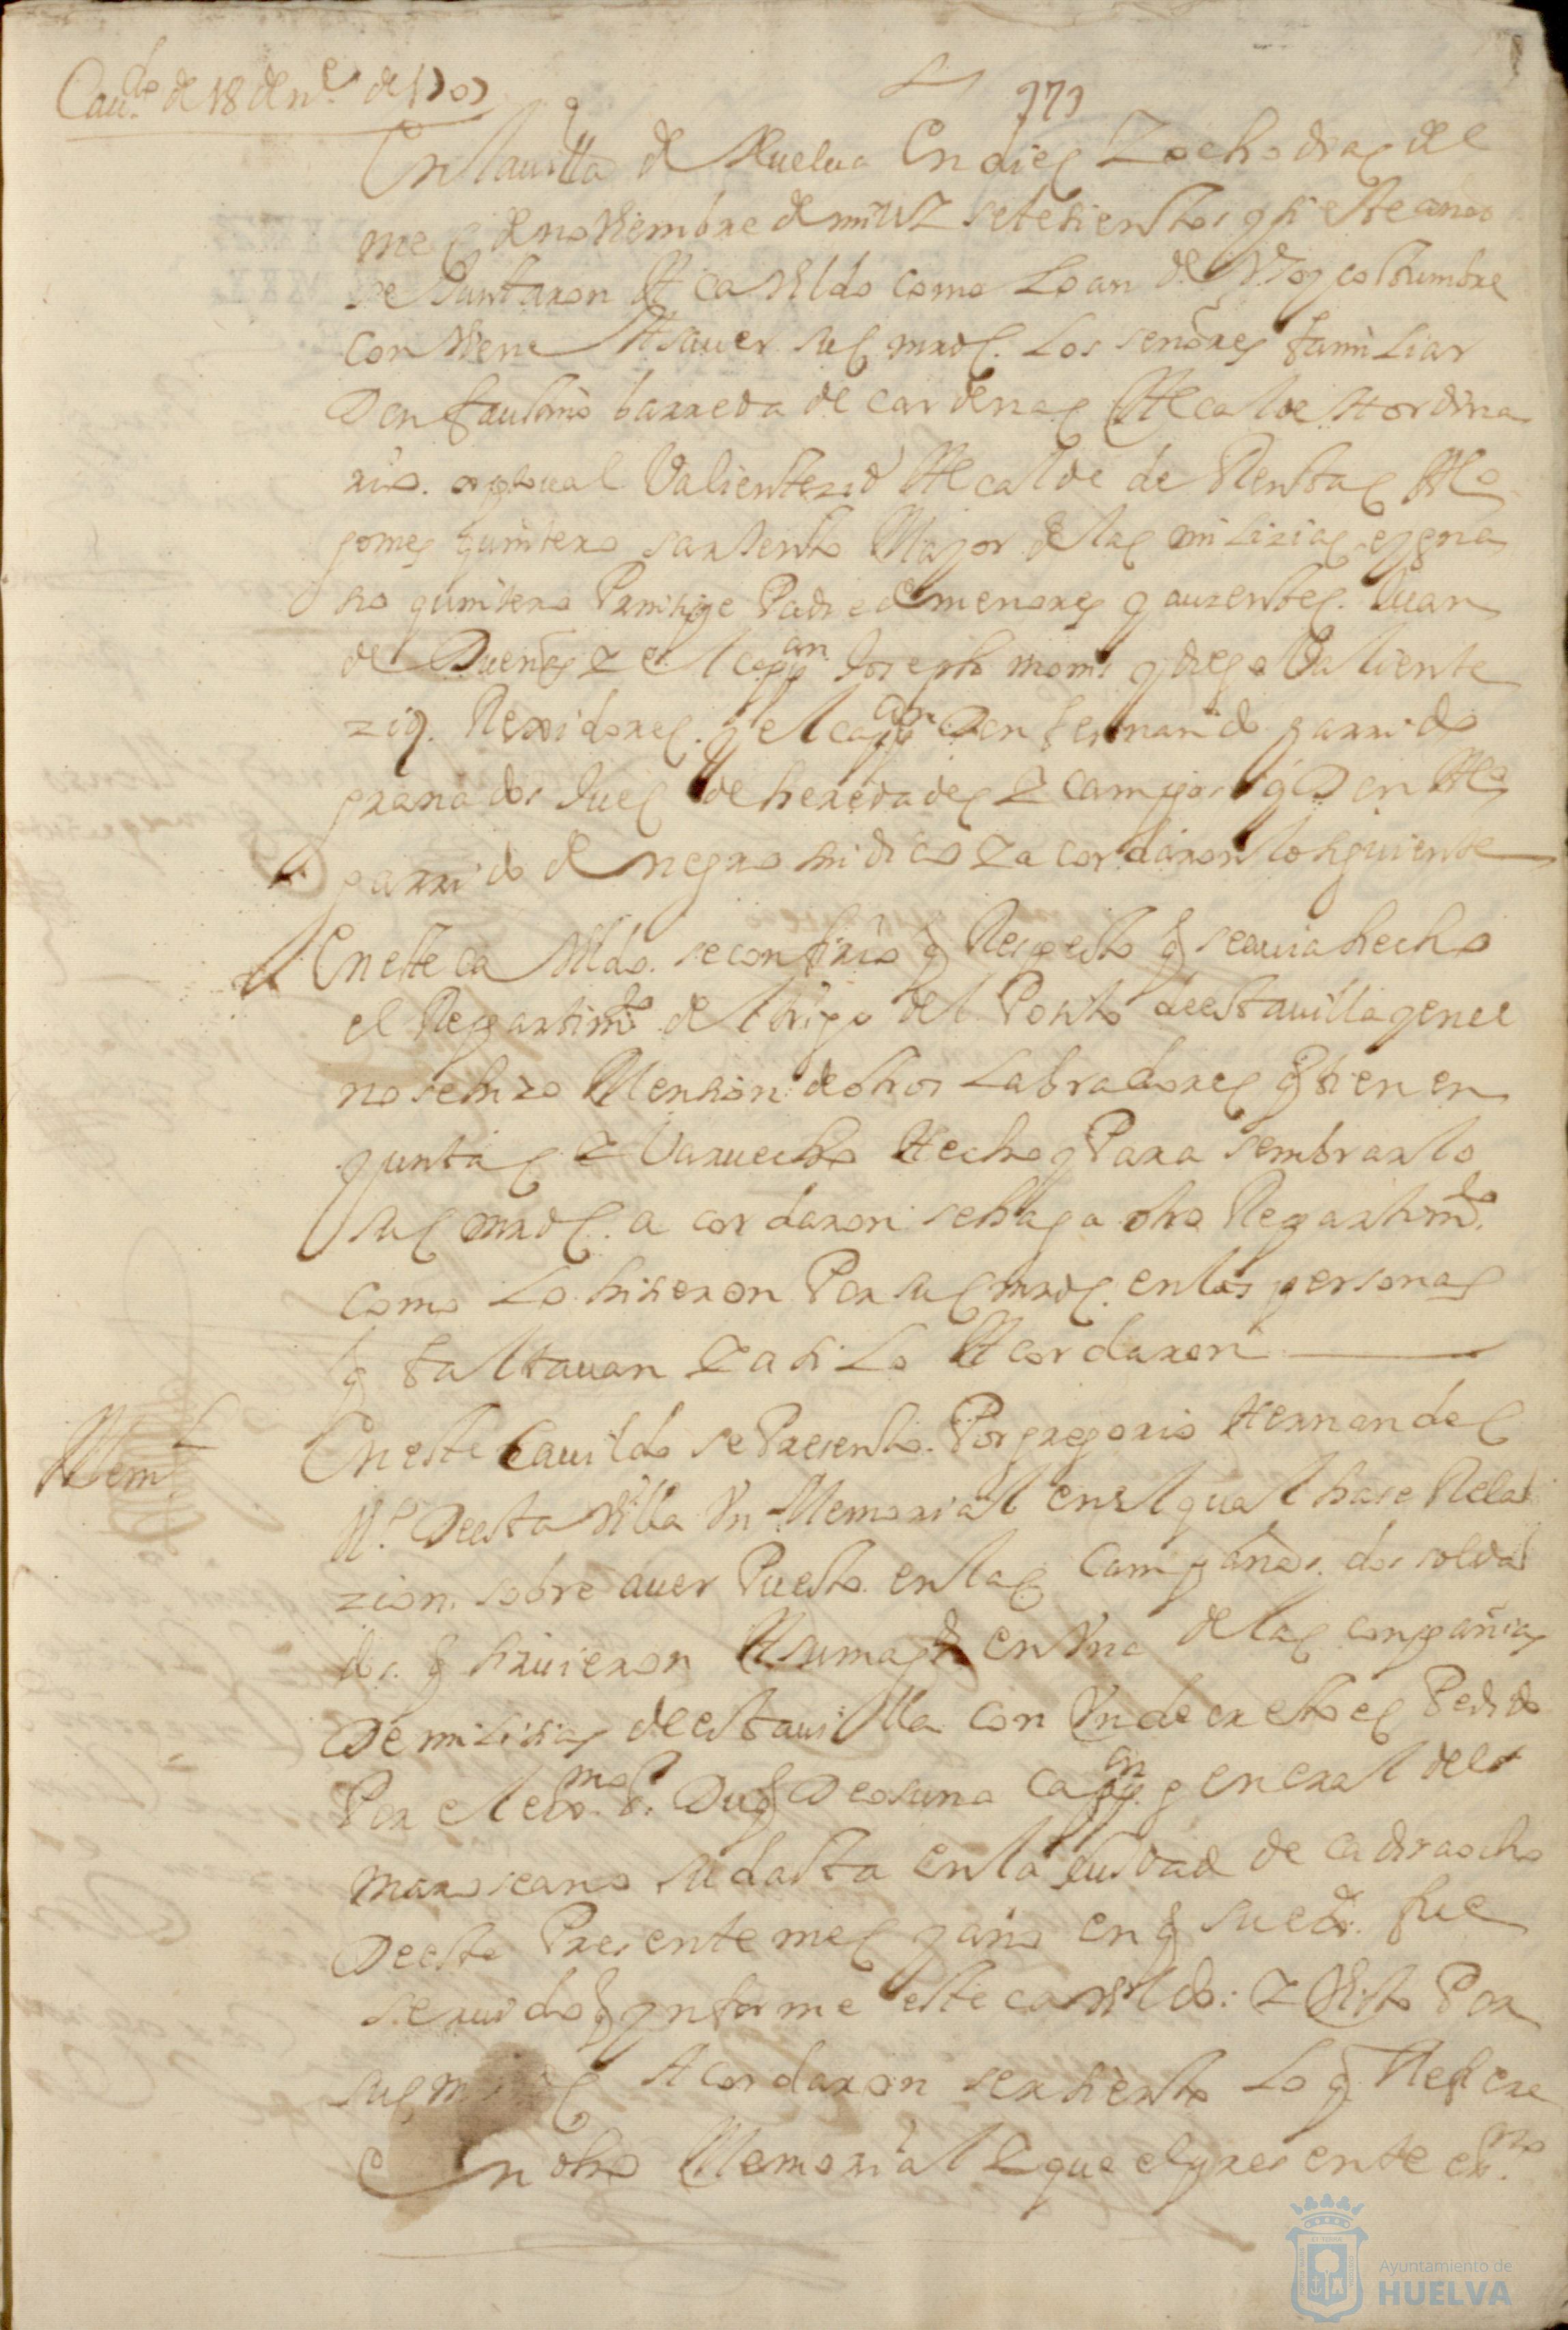 Cau.do de 18 de n.e de 1707
En la uilla de Huelua En dies Z ocho dias del
mes de noViembre de mill Z setesientos y siete años
se Juntaron A CaVildo como Lo an de Vso y costumbre
conViene A sauer sus mrds. Los señores familiar
Don faustino barreda de cardenas Alcalde Hordina
rio. Valiente Alcalde de Rentas Al.o
gomes quintero sarxento Mayor de las milizias
quintero Padre de menores y auzentes. Juan
de Dueñas Z el cap.an Joseph y diego Valiente
Rexidores. y el cap.an Don fernando garrido
granados Jues de heredades Z campos y Don Al.o
garrido de negro sindico Z acordaron lo siguiente
En este caVildo. se confirio q Respecto q se auia hecho
el Repartim.to del trigo del Posito de esta uilla y en el
no se hizo Mension de otros Labradores q tienen
yuntas Z Varuecho Hecho y Para sembrarlo
sus mrds. acordaron se haga otro Repartim.to
como Lo hisieron Por sus mrds. en las personas
q faltauan Z asi Lo Acordaron
Mem.l
En este Cauildo se Presento. Por gregorio Hernandes
V.o De esta Villa Vn Memorial en el qual hase Rela
zion. sobre auer Puesto. en las Campañas. dos solda
dos. q siruieron A su mag.d en Vna de las compañias
De milisias de esta uilla con Vn decreto es Pedido
Por el ex.mo s.r Duq De osuna cap.an general del
mar oseano su dasta en la ciudad de cadis a ocho
De este Presente mes y año en q su ex.a fue
seruido q ynforme este caVildo: Z Visto Por
sus Acordaron ser sierto Lo q Refiere
En otro Memorial Z que el presente es.no
Ayuntamiento de
HUELVA